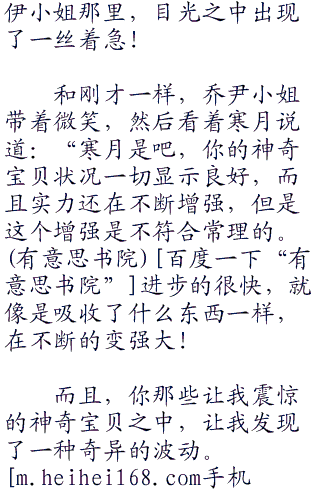 伊小姐那里，目光之中出现
了一丝着急！
和刚才一样，乔尹小姐
带着微笑，然后看着寒月说
道：“寒月是吧，你的神奇
宝贝状况一切显示良好，而
且实力还在不断增强，但是
这个增强是不符合常理的。
(有意思书院)[百度一下“有
意思书院”]进步的很快，就
像是吸收了什么东西一样，
在不断的变强大！
而且，你那些让我震惊
的神奇宝贝之中，让我发现
了一种奇异的波动。
[m.heihei168.com手机